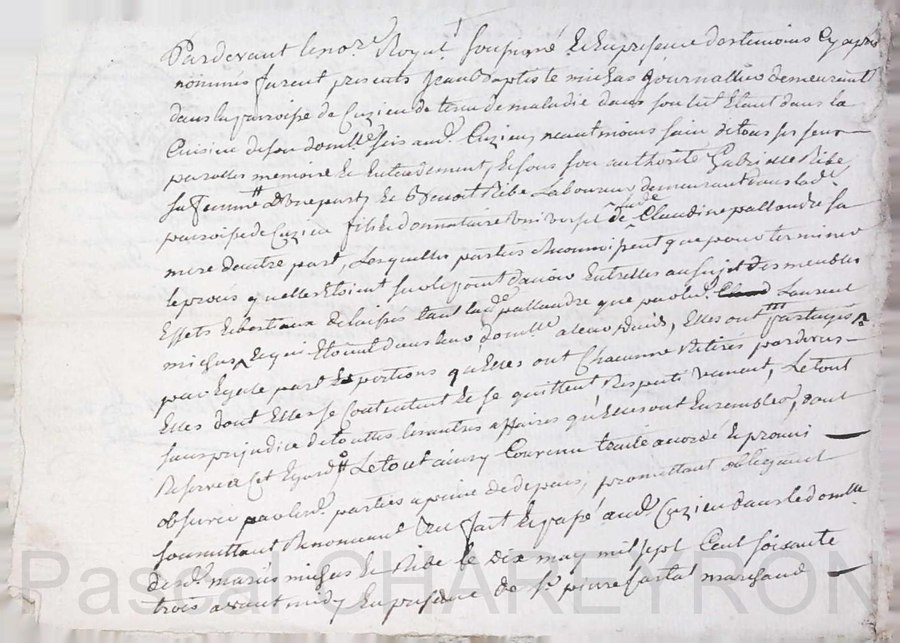 Pardevant le no.re Royal soussigné et En presence des temoins Cy apres
nommés furent presents Jean Baptiste michas Journallier demeurant
dans la parroisse de Cuzieu detenu de maladie dans son lit Etant dans la
Cuisine de son dom.lle sis aud. Cuzieu, neantmoins sain de tous ses sens
parolles memoire et Entendement, et sous son authorité Gabrielle Ribe
sa femme d'Une part, Et Benoit Ribe Laboureur demeurant dans lad.
parroisse de Cuzieu fils et donnataire Universel de Claudine pallandre sa
mere d'autre part, Lesquelles parties reconnoissent que pour terminer
le procès qu'elles Etoient sur le point d'avoir Entrelles au sujet des meubles
Effets Et bestiaux delaissés tant lad. pallandre que par led. Laurent
michas, Et qui Etoint dans leur dom.lle a leur deceds, Elles ont partagés
par Egale part Et portions qu'Elles ont Chacunne Retirés pardevers
Elles dont Elles se Contentent Et se quittent Respectivement, Le tout
sans prejudice de touttes les autres affaires qu'Elles ont Ensembles, dont
Reserve a Cet Egard. Le tout ainsy Convenu traité accordé Et promis
observer par lesd. parties a peine de depens, promettant obligeant
soumettant Renonceant &c fait Et passé aud. Cuzieu dans le dom.lle
desd. mariés michas Et Ribe le dix may mil sept Cent soixante
trois avant midy En presence de S.r pierre fartat marchand
Pascal CHAREYRON